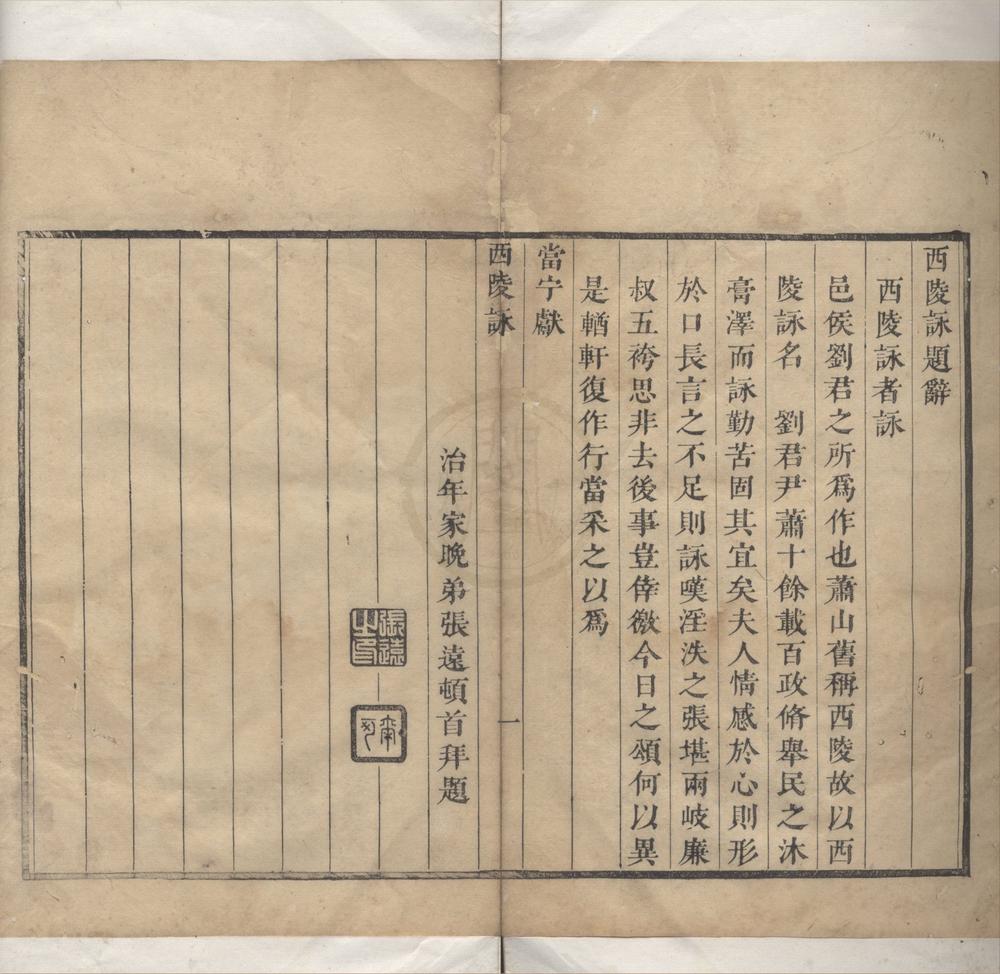 西陵詠題辭
西陵詠者詠
邑侯劉君之所爲作也蕭山舊稱西陵故以西
陵詠名　劉君尹蕭十餘載百政脩舉民之沐
膏澤而詠勤苦固其宜矣夫人情感於心則形
於口長言之不足則詠嘆淫泆之張堪兩岐廉
叔五袴思非去後事豈倖徼今日之頌何以異
是輶軒復作行當采之以爲
當宁獻
西陵詠
一
治年家晚弟張遠頓首拜題
張遠之印